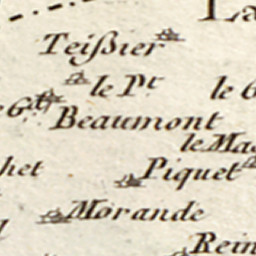 La
Teißier
le Pt
le G
e G.
Beaumont
le Mas
het
Piquet
Morande
Rein